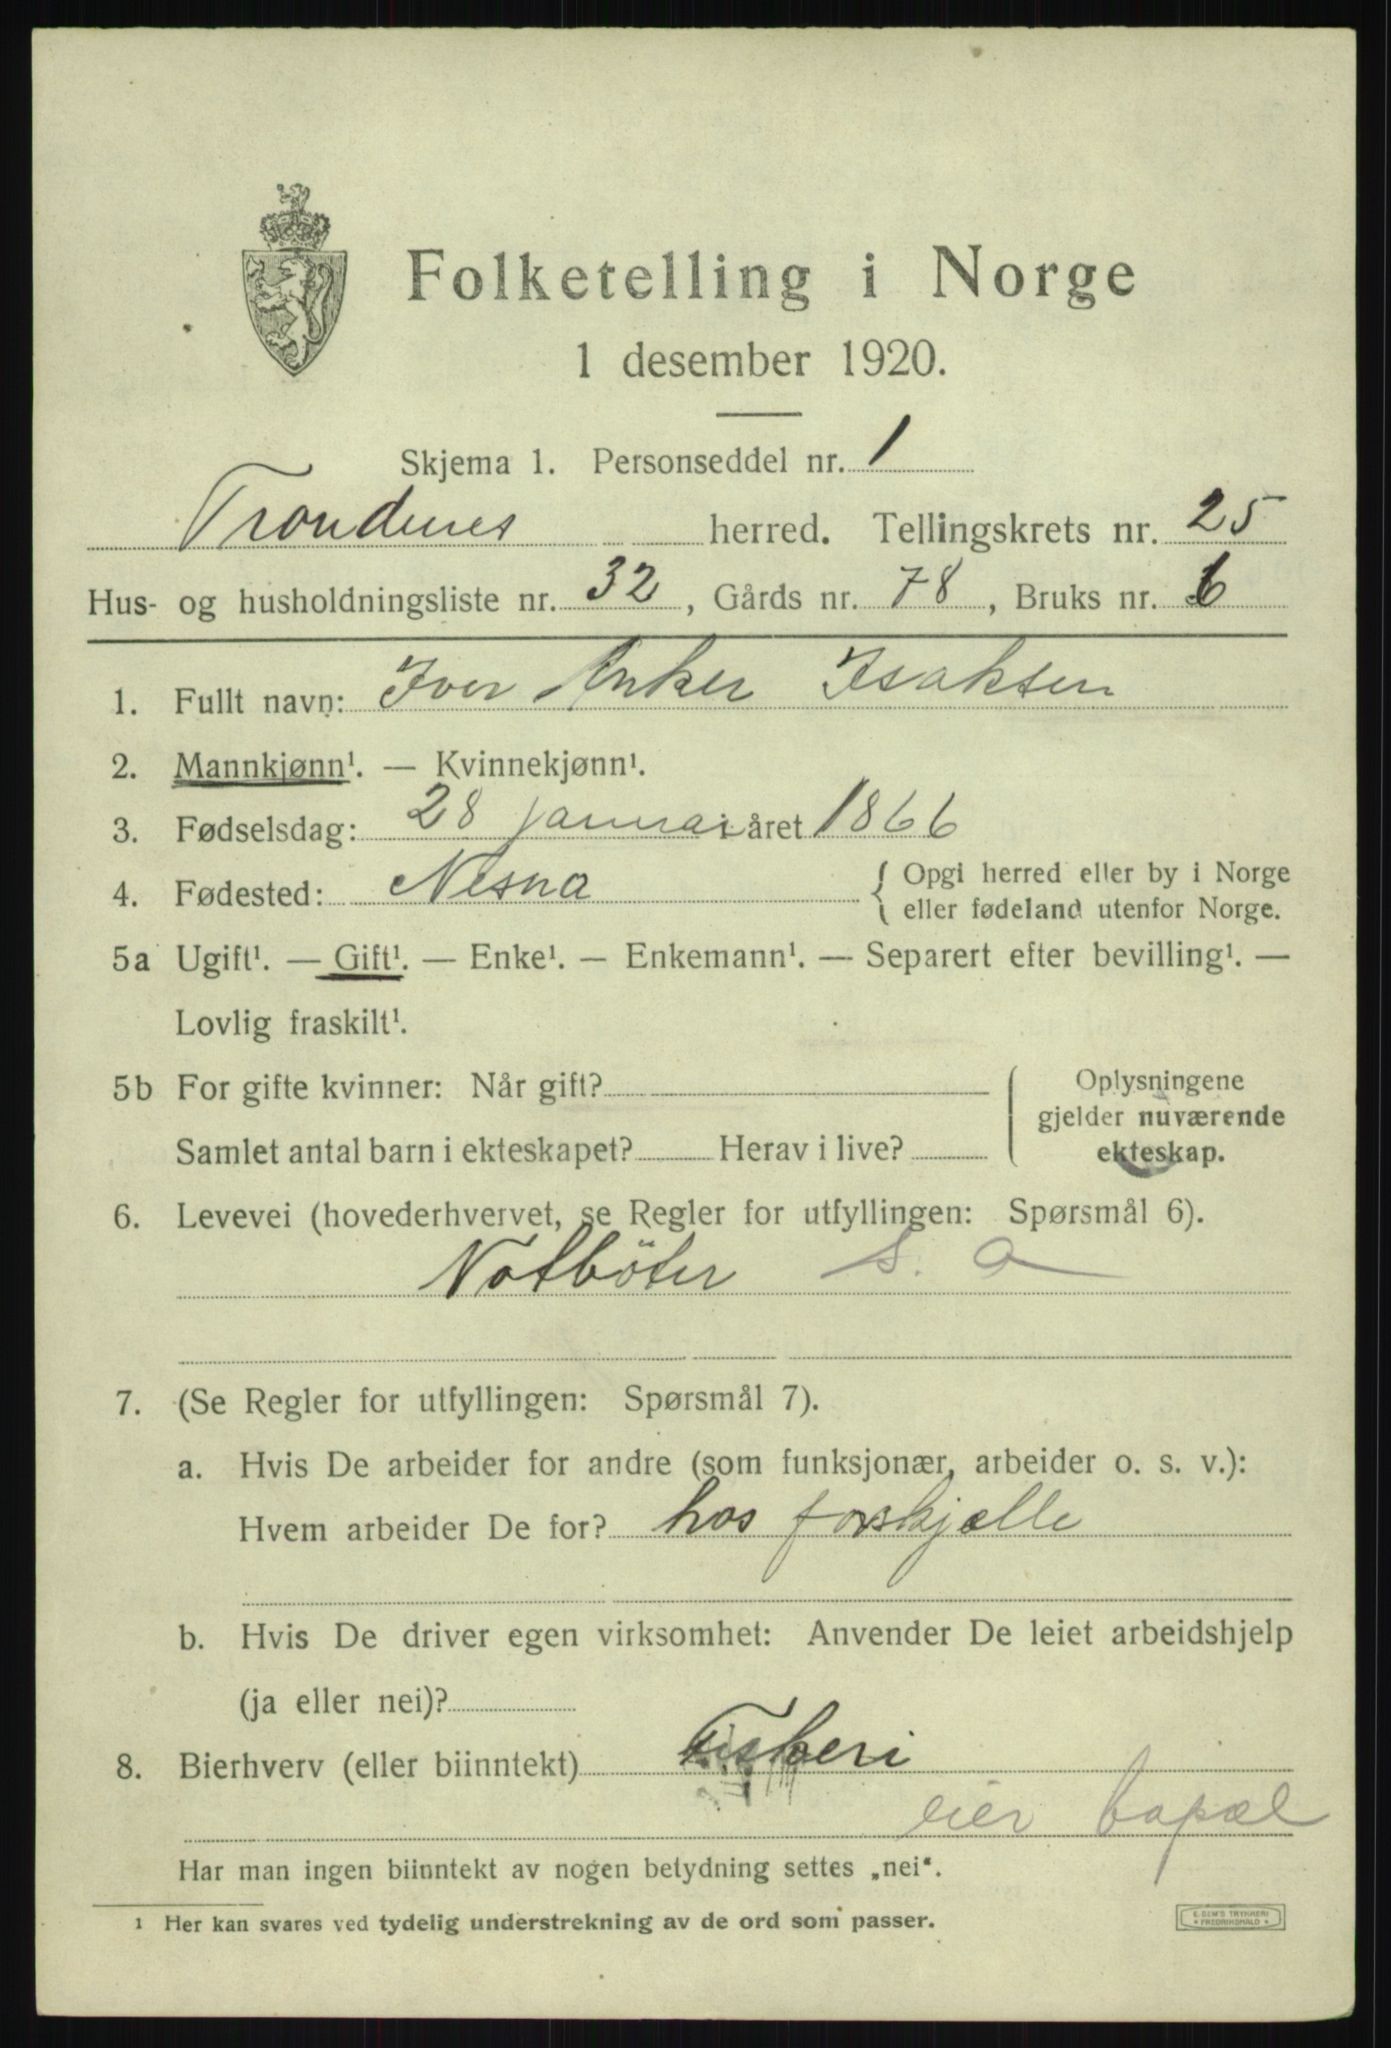 Folketelling i Norge
1 desember 1920.
Skjema 1. Personseddel nr. 1
Trondenes herred. Tellingskrets nr. 25
Hus- og husholdningsliste nr. 32, Gårds nr. 78, Bruks nr. 6
1. Fullt navn: Iver Anker Isaksen
2. Mannkjønn¹. — Kvinnekjønn¹.
3. Fødselsdag: 28 januar i året 1866
4. Fødested: Nesna { Opgi herred eller by i Norge
eller fødeland utenfor Norge.
5a Ugift¹. — Gift¹. — Enke¹. — Enkemann¹. — Separert efter bevilling¹. —
Lovlig fraskilt¹.
5b For gifte kvinner: Når gift? ( Oplysningene
gjelder nuværende
Samlet antal barn i ekteskapet? Herav i live? ekteskap.
6. Levevei (hovederhvervet, se Regler for utfyllingen: Spørsmål 6).
Notböter s. a
7. (Se Regler for utfyllingen: Spørsmål 7).
a. Hvis De arbeider for andre (som funksjonær, arbeider o. s. v.):
Hvem arbeider De for? hos forskjælle
b. Hvis De driver egen virksomhet: Anvender De leiet arbeidshjelp
(ja eller nei)?
8. Bierhverv (eller biinntekt) Fiskeri
eier
Har man ingen biinntekt av nogen betydning settes „nei“.
¹ Her kan svares ved tydelig understrekning av de ord som passer.
E. SEM'S TRYKKERI
FREDRIKSHALD